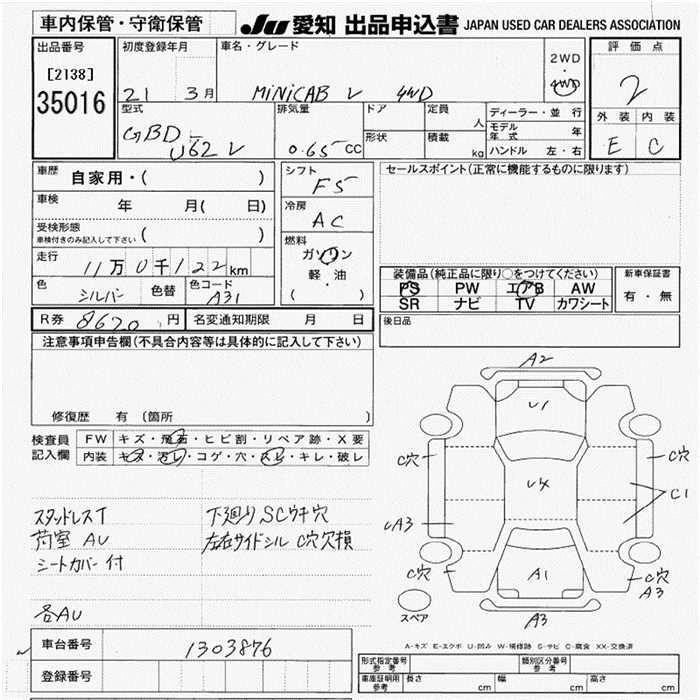 車内保管・守衛保管 JU 愛知 出品申込書 JAPAN USED CAR DEALERS ASSOCIATION
出品番号 初度登録年月 車名・グレード 2WD 評価点
[2138] ・
35016 21 3月 MINICAB V 4WD 4WD 2
型式 排気量 ドア 定員 人 ディーラー・並 行 外装 内装
GBD- モデル年式 年
U62V 0.65 CC 形状 積載 kg ハンドル 左・右 E C
車歴 自家用・( ) シフト F5 セールスポイント(正常に機能するものに限ります)
車検 年 月( 日) 冷房 AC
受検形態
車検付きのみ記入して下さい ( ) 燃料
走行 11万0千122km ガソリン
軽・油 装備品(純正品に限り○をつけてください) 新車保証書
色 シルバー 色替 色コード A31 ( ・ ) PS PW エアB AW 有・無
SR ナビ TV カワシート
R券 8620円 名変通知期限 月 日 後日品
注意事項申告欄(不具合内容等は具体的に記入して下さい)
修復歴 有 (箇所 )
検査員 FW キズ・飛石・ヒビ割・リペア跡・X要
記入欄 内装 キズ・汚レ・コゲ・穴・スレ・キレ・破レ
A2
U1
C穴 C穴
U4 C1
スタッドレスT 下廻りSCウキ穴
荷室 AU 左右サイドシル C穴欠損 UA3
シートカバー付
C穴 A1 C穴
A3
各AU スペア A3
A-キズ E-エクボ U-凹み W-補修跡 S-サビ C-腐食 XX-交換済
車台番号 1303876
登録番号 形式指定番号参考 類別区分番号参考
車庫証明用参考 長さ cm 幅 cm 高さ cm